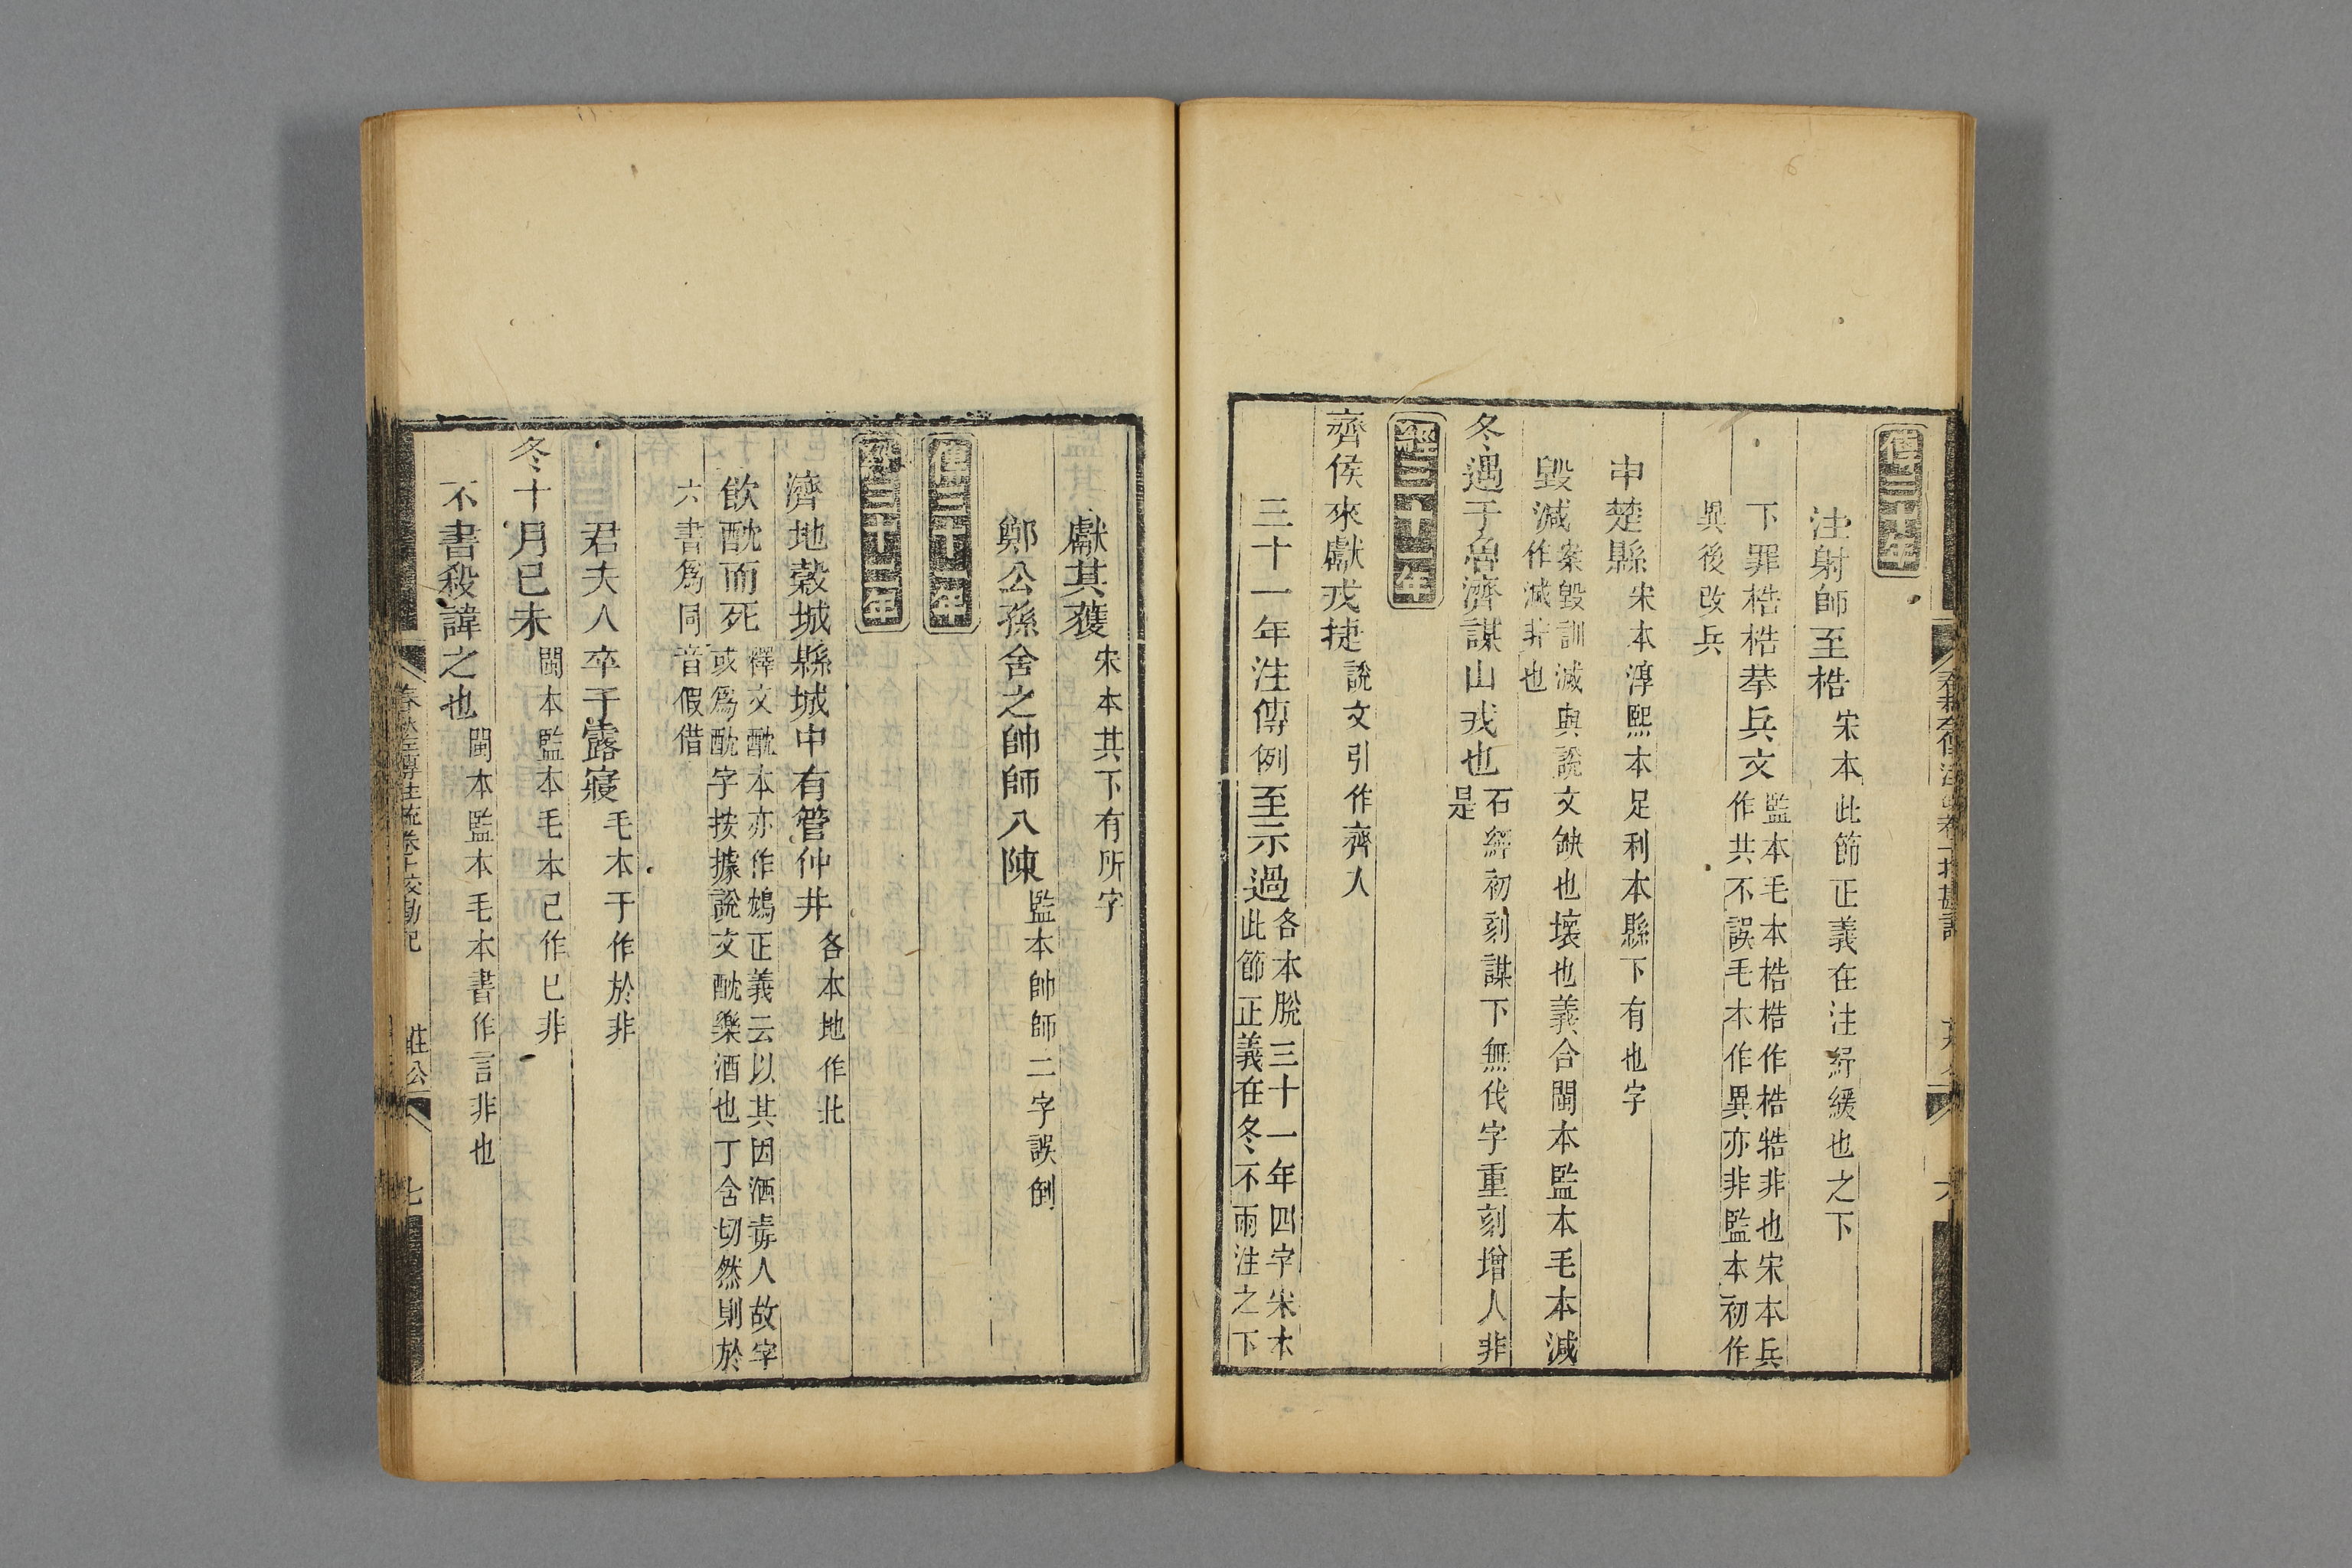 傳三十年
注射師至梏宋本此節正義在注紓緩也之下
下罪梏梏拲兵文監本毛本梏梏作梏牿非也宋本兵
作共不誤毛本作異亦非監本初作
異後改兵
申楚縣宋本淳熙本足利本縣下有也字
毀減案毀訓減與說文缺也壞也義合閩本監本毛本減
作滅非也
冬遇于魯濟謀山戎也石經初刻謀下無伐字重刻增入非
是
經三十一年
齊侯來獻戎捷說文引作齊人
三十一年注傳例至示過各本脫三十一年四字宋本
此節正義在冬不雨注之下
獻其獲宋本其下有所字
鄭公孫舍之帥師入陳監本帥師二字誤倒
傳三十一年
經三十二年
濟地穀城縣城中有管仲井各本地作北
飲酖而死釋文酖本亦作鴆正義云以其因酒毒人故字
或爲酖字按據說文酖樂酒也丁含切然則於
六書爲同音假借
君夫人卒于露寢毛本于作於非
冬十月己未閩本監本毛本己作巳非
不書殺諱之也閩本監本毛本書作言非也
春秋左傳注疏卷十校勘記　莊公　七